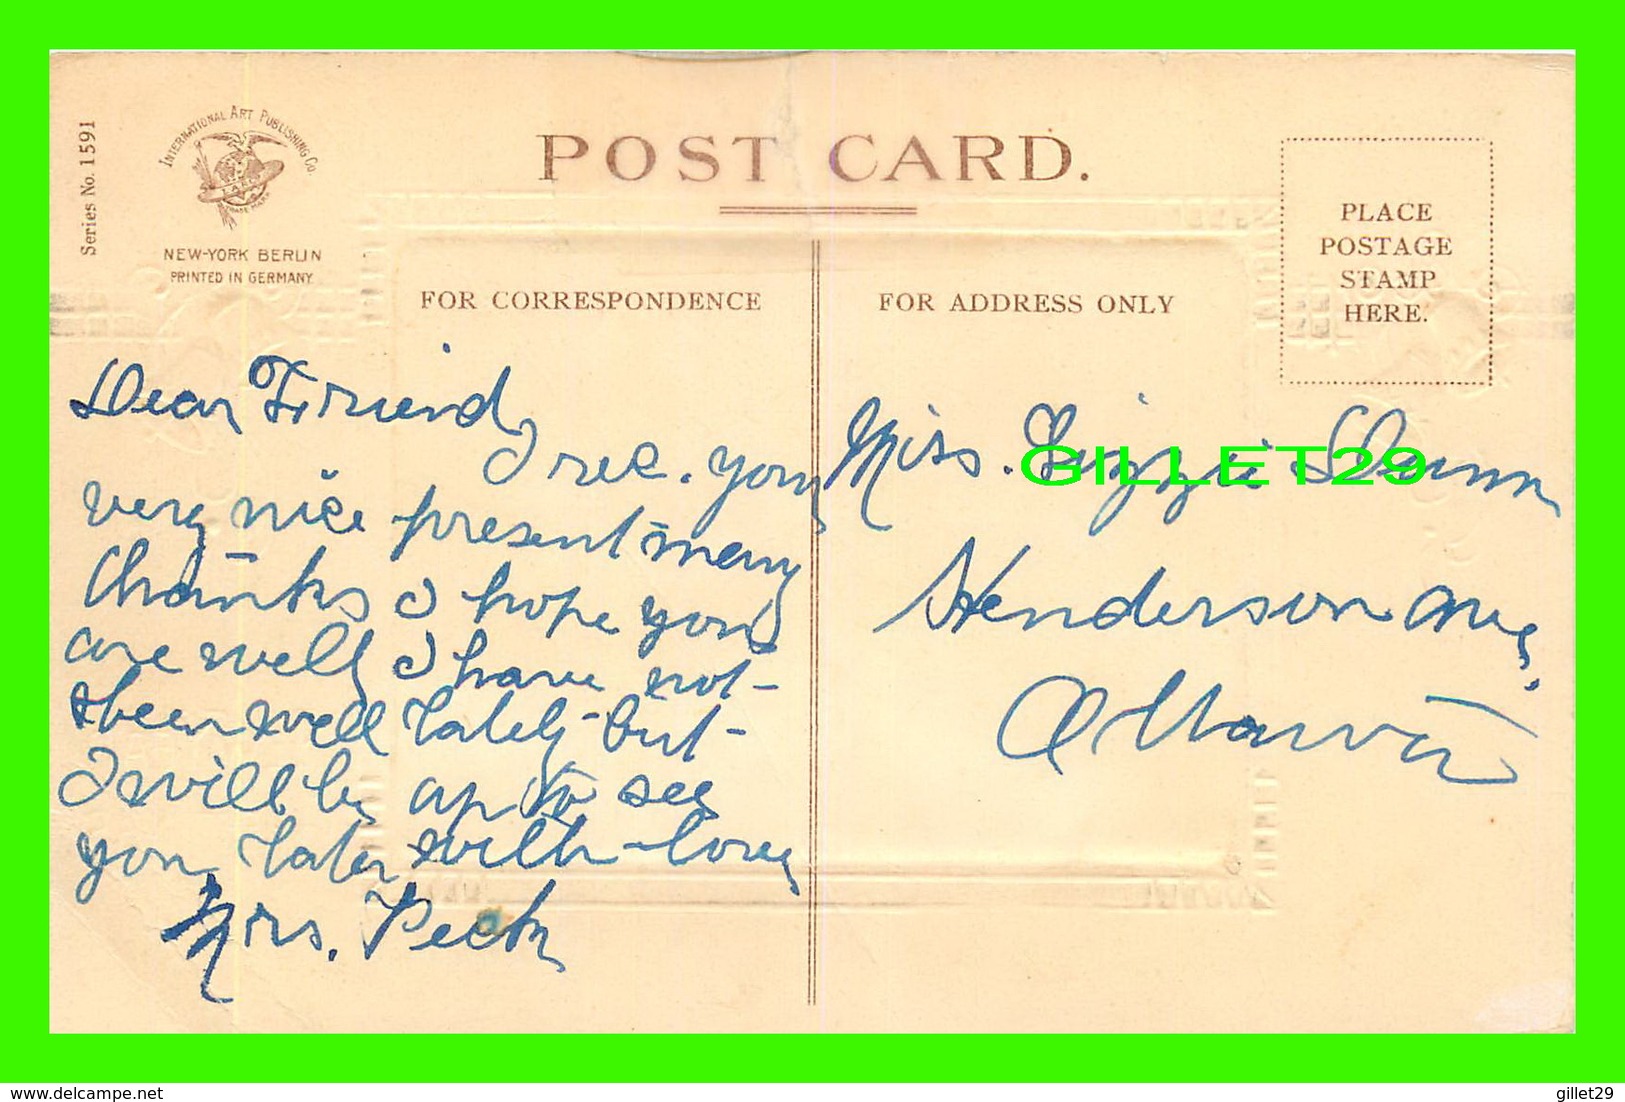 Series No. 1591
INTERNATIONAL ART PUBLISHING CO.
I.A.P.Co.
TRADE MARK
NEW-YORK BERLIN
PRINTED IN GERMANY
POST CARD.
PLACE
POSTAGE
STAMP
HERE.
FOR CORRESPONDENCE
FOR ADDRESS ONLY
Dear Friend
I rec. your
very nice present many
thanks I hope you
are well I have not
been well lately but
I will be up to see
you later with love
Mrs. Peck
Miss. Lizzie Dunn
Henderson Ave,
Ottawa
GILLET29
delcampe.net
gillet29